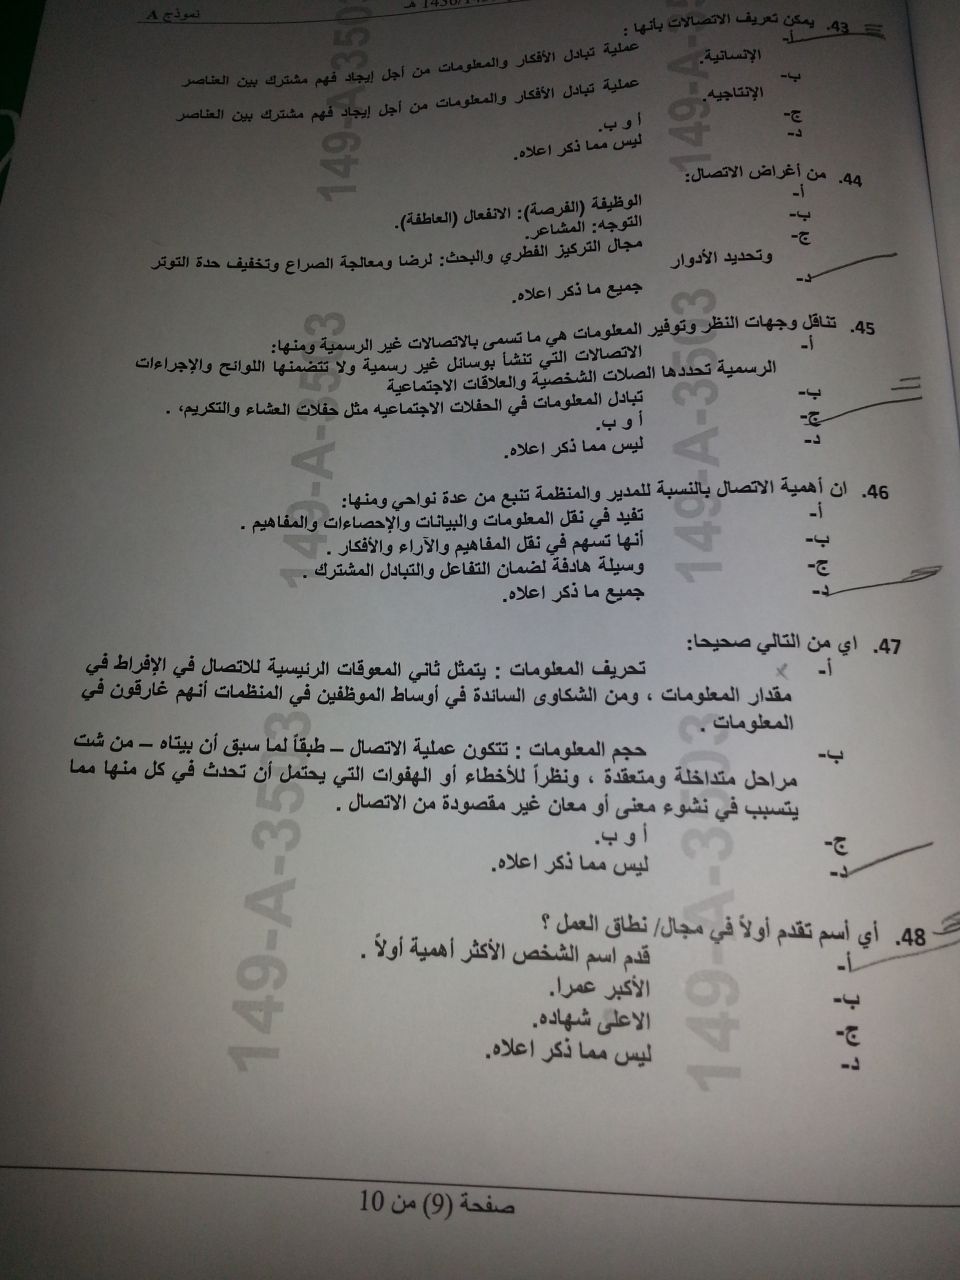 نموذج A
43. يمكن تعريف الاتصالات بأنها :
أ- عملية تبادل الأفكار والمعلومات من أجل إيجاد فهم مشترك بين العناصر
الإنسانية.
ب- عملية تبادل الأفكار والمعلومات من أجل إيجاد فهم مشترك بين العناصر
الإنتاجيه.
ج- أ و ب.
د- ليس مما ذكر اعلاه.
44. من أغراض الاتصال:
أ- الوظيفة (الفرصة): الانفعال (العاطفة).
ب- التوجه: المشاعر.
ج- مجال التركيز الفطري والبحث: لرضا ومعالجة الصراع وتخفيف حدة التوتر
وتحديد الأدوار
د- جميع ما ذكر اعلاه.
45. تناقل وجهات النظر وتوفير المعلومات هي ما تسمى بالاتصالات غير الرسمية ومنها:
أ- الاتصالات التي تنشأ بوسائل غير رسمية ولا تتضمنها اللوائح والإجراءات
الرسمية تحددها الصلات الشخصية والعلاقات الاجتماعية
ب- تبادل المعلومات في الحفلات الاجتماعيه مثل حفلات العشاء والتكريم، .
ج- أ و ب.
د- ليس مما ذكر اعلاه.
46. ان أهمية الاتصال بالنسبة للمدير والمنظمة تنبع من عدة نواحي ومنها:
أ- تفيد في نقل المعلومات والبيانات والإحصاءات والمفاهيم .
ب- أنها تسهم في نقل المفاهيم والآراء والأفكار .
ج- وسيلة هادفة لضمان التفاعل والتبادل المشترك .
د- جميع ما ذكر اعلاه.
47. اي من التالي صحيحا:
أ- تحريف المعلومات : يتمثل ثاني المعوقات الرئيسية للاتصال في الإفراط في
مقدار المعلومات ، ومن الشكاوى الساندة في أوساط الموظفين في المنظمات أنهم غارقون في
المعلومات .
ب- حجم المعلومات : تتكون عملية الاتصال – طبقاً لما سبق أن بيتاه – من شت
مراحل متداخلة ومتعقدة ، ونظراً للأخطاء أو الهفوات التي يحتمل أن تحدث في كل منها مما
يتسبب في نشوء معنى أو معان غير مقصودة من الاتصال .
ج- أ و ب.
د- ليس مما ذكر اعلاه.
48. أي أسم تقدم أولاً في مجال/ نطاق العمل ؟
أ- قدم اسم الشخص الأكثر أهمية أولاً .
ب- الأكبر عمرا.
ج- الاعلى شهاده.
د- ليس مما ذكر اعلاه.
صفحة (9) من 10
149-A-3503
149-A-3503
149-A-3503
149-A-3503
149-A-3503